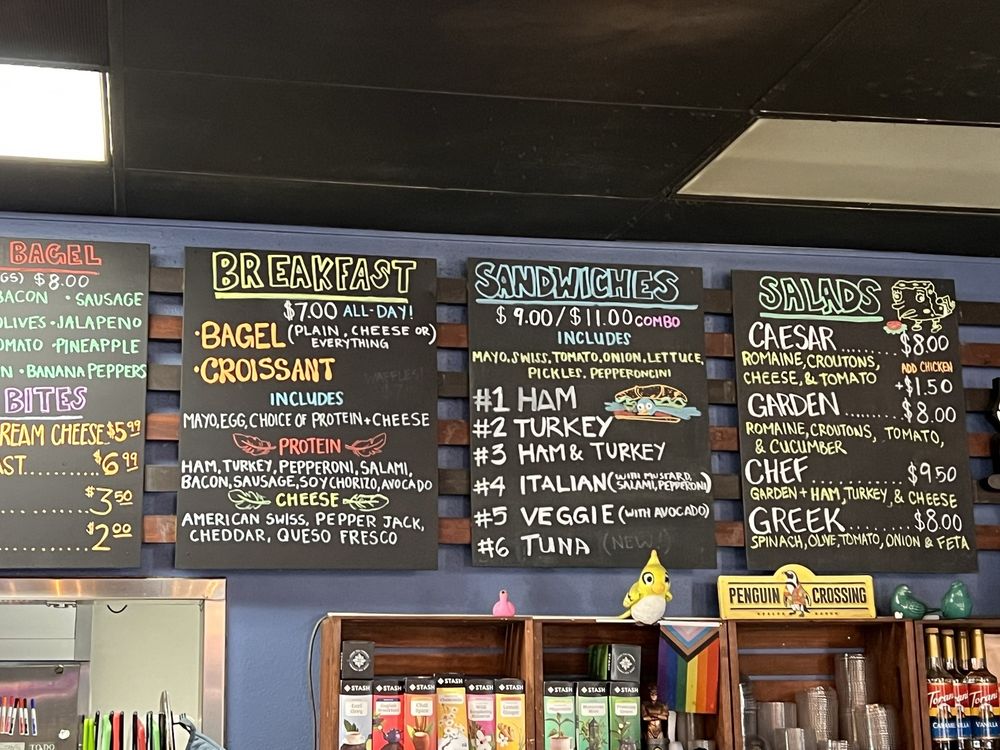 BAGEL
GS) $8.00
BACON • SAUSAGE
OLIVES • JALAPENO
OMATO • PINEAPPLE
N • BANANA PEPPERS
BITES
REAM CHEESE.$5.99
AST.......$6.99
$3.50
$2.00
BREAKFAST
$7.00 ALL-DAY!
• BAGEL (PLAIN, CHEESE OR)
EVERYTHING
• CROISSANT
WAFFLES!
INCLUDES
MAYO, EGG, CHOICE OF PROTEIN + CHEESE
PROTEIN
HAM, TURKEY, PEPPERONI, SALAMI,
BACON, SAUSAGE, SOY CHORIZO, AVOCADO
CHEESE
AMERICAN SWISS, PEPPER JACK,
CHEDDAR, QUESO FRESCO
SANDWICHES
$9.00/$11.00 COMBO
INCLUDES
MAYO, SWISS, TOMATO, ONION, LETTUCE,
PICKLES, PEPPERONCINI
#1 HAM
#2 TURKEY
#3 HAM & TURKEY
#4 ITALIAN (WITH MUSTARD,
SALAMI, PEPPERONI)
#5 VEGGIE (WITH AVOCADO)
#6 TUNA (NEW!)
SALADS
CAESAR........$8.00
ROMAINE, CROUTONS,
CHEESE, & TOMATO
ADD CHICKEN
+$1.50
GARDEN........$8.00
ROMAINE, CROUTONS, TOMATO,
& CUCUMBER
CHEF........$9.50
GARDEN + HAM, TURKEY, & CHEESE
GREEK........$8.00
SPINACH, OLIVE, TOMATO, ONION & FETA
PENGUIN CROSSING
STASH
STASH
STASH
STASH
STASH
STASH
STASH
STASH
STASH
Earl Grey
Chai Spice
Torani
Torani
CARAMEL
VANILLA
TO DO